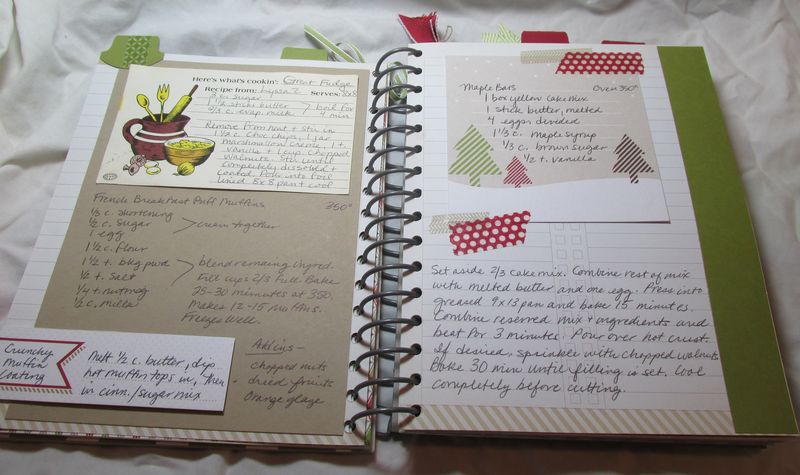 Here's what's cookin': Great Fudge
Recipe from: Serves: 8x8
2 c. sugar
1 1/2 stick butter > boil for
2/3 c. evap. milk 4 min
Remove from heat + stir in
1 1/2 c. choc chips, 1 jar
marshmallow creme, 1 t.
vanilla + 1 cup chopped
walnuts. Stir until
completely dissolved +
coated. Pour into foil
lined 8x8 pan + cool
French Breakfast Puff Muffins 350°
1/3 c. shortening
1/2 c. sugar > cream together
1 egg
1 1/2 c. flour
1 1/2 t. bkg pwd > blend remaining ingred.
1/2 t. salt Fill cups 2/3 full. Bake
1/4 t. nutmeg 25-30 minutes at 350.
1/2 c. milk Makes 12-15 muffins.
Freezes well.
Add ins -
chopped nuts
dried fruits
orange glaze
Crunchy
Muffin
Coating
Melt 1/2 c. butter, dip
hot muffin tops in, then
in cinn./sugar mix
Maple Bars Oven 350°
1 box yellow cake mix
1 stick butter, melted
4 eggs, divided
1 1/3 c. maple syrup
1/3 c. brown sugar
1/2 t. vanilla
Set aside 2/3 cake mix. Combine rest of mix
with melted butter and one egg. Press into
greased 9x13 pan and bake 15 minutes.
Combine reserved mix + ingredients and
beat for 3 minutes. Pour over hot crust.
If desired, sprinkle with chopped walnuts.
Bake 30 min until filling is set. Cool
completely before cutting.